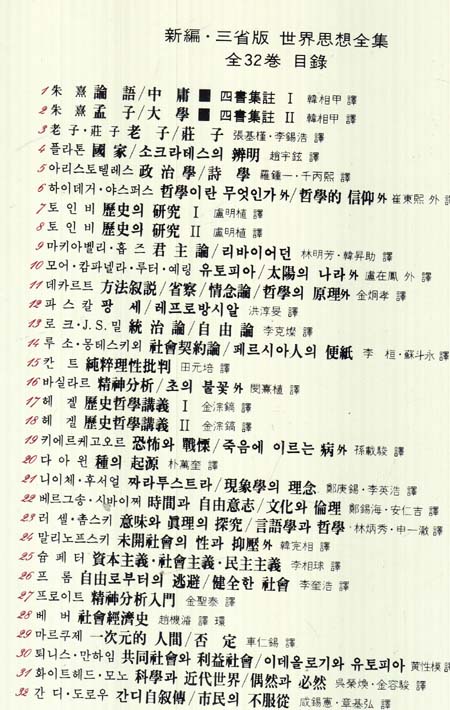 新編·三省版 世界思想全集
全32巻 目錄
1 朱 熹 論 語/中 庸 ■ 四書集註 Ⅰ 韓相甲 譯
2 朱 熹 孟 子/大 學 ■ 四書集註 Ⅱ 韓相甲 譯
3 老 子·莊 子 老 子/莊 子 張基槿·李錫浩 譯
4 플라톤 國 家/소크라테스의 辨明 趙宇鉉 譯
5 아리스토텔레스 政 治 學/詩 學 羅鍾一·千丙熙 譯
6 하이데거·야스퍼스 哲學이란 무엇인가外/哲學的 信仰外 崔東熙 外 譯
7 토 인 비 歷史의 硏究 Ⅰ 盧明植 譯
8 토 인 비 歷史의 硏究 Ⅱ 盧明植 譯
9 마키아벨리·홉 즈 君 主 論/리바이어던 林明芳·韓昇助 譯
10 모어·캄파넬라·루터·에링 유토피아/太陽의 나라外 盧在鳳 外 譯
11 데카르트 方法叙説/省察/情念論/哲學의 原理外 金炯孝 譯
12 파 스 칼 팡 세/레프로방시알 洪淳旻 譯
13 로 크·J.S.밀 統 治 論/自 由 論 李克燦 譯
14 루 소·몽테스키외 社會契約論/페르시아人의 便紙 李 桓·蘇斗永 譯
15 칸 트 純粹理性批判 田元培 譯
16 바실라르 精神分析/초의 불꽃外 閔熹植 譯
17 헤 겔 歷史哲學講義 Ⅰ 金淙鎬 譯
18 헤 겔 歷史哲學講義 Ⅱ 金淙鎬 譯
19 키에르케고오르 恐怖와 戰慄/죽음에 이르는 病外 孫載駿 譯
20 다 아 윈 種의 起源 朴萬奎 譯
21 니이체·후서얼 짜라투스트라/現象學의 理念 鄭庚錫·李英浩 譯
22 베르그송·시바이쩌 時間과 自由意志/文化와 倫理 鄭錫海·安仁吉 譯
23 러 셀·촘스키 意味와 眞理의 探究/言語學과 哲學 林炳秀·申一澈 譯
24 말리노프스키 未開社會의 性과 抑壓外 韓完相 譯
25 슘 페 터 資本主義·社會主義·民主主義 李相球 譯
26 프 롬 自由로부터의 逃避/健全한 社會 李奎浩 譯
27 프로이트 精神分析入門 金聖泰 譯
28 베 버 社會經濟史 趙璣濬 譯 環
29 마르쿠제 一次元的 人間/否 定 車仁錫 譯
30 퇴니스·만하임 共同社會와 利益社會/이데올로기와 유토피아 黄性模 譯
31 화이트헤드·모노 科學과 近代世界/偶然과 必然 吳榮煥·金容駿 譯
32 간 디·도로우 간디自叙傳/市民의 不服從 咸錫憲·章基弘 譯